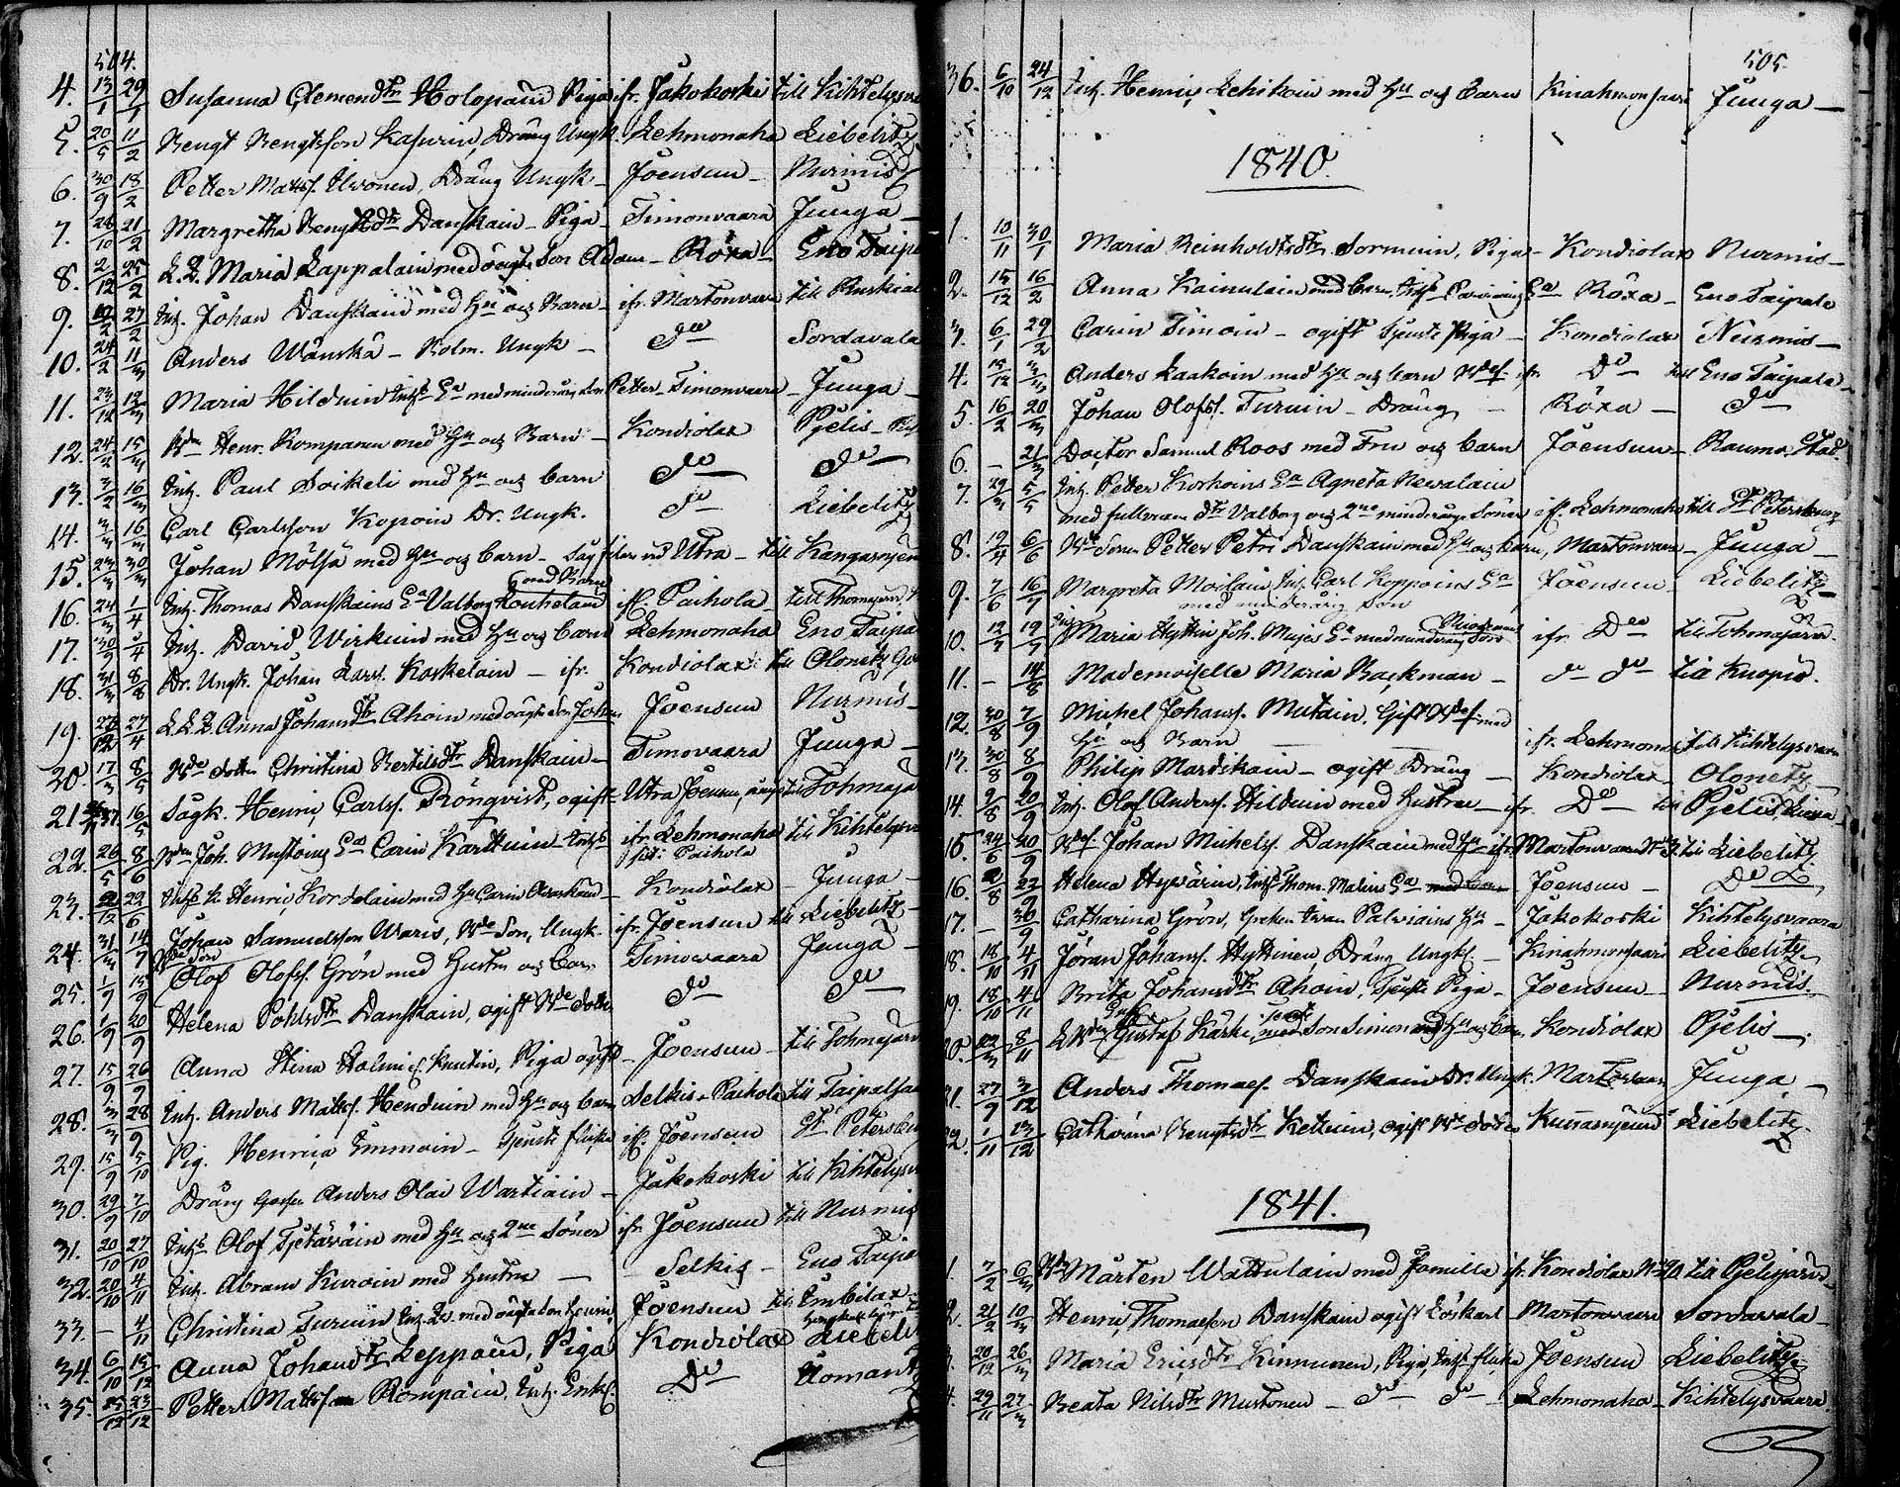 504.
4. 13/1 29/1 Susanna Clemendtr Holopain Piga ifr. Jakokoski till Kihtelysva
5. 20/5 11/2 Bengt Bengtsson Kasurin, Dräng Ungk. Lehmonaho Liebelitz
6. 30/9 18/2 Petter Matts. Ilvonen, Dräng Ungk. Joensuu Nurmis
7. 26/10 21/2 Margretha Bengtsdtr Danskain Piga Timonvaara Juuga
8. 2/12 25/2 L.Q. Maria Lappalain med oägta Son Adam Röxa Eno Taipa
9. 27/2 Inh. Johan Danskain med Hu och Barn ifr. Martonvara till Ruskial
10. 24/2 11/3 Anders Wänskä Kolm. Ungk Do Sordavala
11. 12/3 Maria Hilduin Inhs Ea med minderårig Son Petter Timonvaara Juuga
12. 24/2 15/3 Bdn Henr. Kompanen med Hu och Barn Kondiolax Pjelis
13. 3/2 16/3 Inh. Paul Soikeli med Hu och barn Do Do
14. 16/3 Carl Carlsson Kopoin Dr. Ungk. Do Liebelitz
15. 23/3 30/3 Johan Mölsä med Hu och barn vid Utra till Kangasnjem
16. 24/3 1/4 Inh. Thomas Danskains Ea Valborg Louhelain med Barn ifr. Paihola till Thomajerwi
17. 30/9 Inh. David Wirkuin med Hu och barn Lehmonaho Eno Taipa
18. 31/3 8/8 Dr. Ungk. Johan Lars. Koskelain ifr. Kondiolax till Olonetz Go
19. 26/12 27/4 L.L.Q. Anna Johansdtr Ahoin med oägta Son Johan Joensuu Nurmis
20. 17/3 8/5 Bde dotter Christina Bertilsdtr Danskain Timovaara Juuga
21. 16/5 Sågk. Henric Carls. Rönqvist, ogift Utra Joensuu, till Tohmaja
22. 26/5 8/6 Bdn Joh. Mustoins Ea Carin Karttuin ifr. Lehmonaho till Kihtelysva
Paihola
23. 22/12 22/6 Henric Kordelain med Hu Carin Kondiolax Juuga
24. 31/3 14/7 Johan Samuelsson Waris, Bde Son, Ungk. ifr. Joensuu till Liebelitz
25. 1/9 15/9 Bde Son Olof Olofs. Grön med Hustru och Barn Timowaara Juuga
26. 1/9 20/9 Helena Påhlsdtr Danskain, ogift Bde dotter Do Do
27. 15/9 26/9 Anna Stina Holm Knutin, Piga ogift Joensuu till Tohmajärv
28. 3/3 28/9 Inh. Anders Matts. Henduin med Hu och barn Selkis Paihola till Taipalsa
29. 15/9 5/10 Pig. Henrica Immoin tjenste flicka ifr. Joensuu St Petersbu
30. 29/9 7/10 Dräng Gosse Anders Olai Wartiain Jakokoski till Kihtelysv
31. 20/10 27/10 Inhs Olof Tjetäväin med Hu och 2ne Söner ifr. Joensuu till Nurmis
32. 20/10 4/11 Inh. Abram Kuroin med Hustru Selkis Eno Taipa
33. – 4/11 Christina Turuin Inh. Er. med oägta Son Henric Joensuu till Imbilax
34. 6/10 15/12 Anna Johansdtr Leppoin, Piga Kondiolax Liebeli
35. 23/12 Petter Mattsson Rompain, Inh. Enkl. Do Ilomants
505.
36. 6/10 24/12 Inh. Henric Lehikoin med Hu och barn Kinahmonsaari Juuga
1840.
1. 10/11 30/1 Maria Reinholdsdtr Sormuin, Piga Kondiolax Nurmis
2. 15/12 16/2 Anna Kainulain med barn Inhs Ea Röxa Eno Taipale
3. 6/1 29/2 Carin Timoin ogift tjenste Piga Kondiolax Nurmis
4. 15/12 Anders Laakoin med Hu och barn ifr. Do till Eno Taipale
5. 16/2 20/3 Johan Olofs. Turuin Dräng Röxa Do
6. – 21/3 Doctor Samuel Roos med Fru och barn Joensuu Raumo Stad.
7. 29/3 5/5 Inh. Petter Korhoins Ea Agneta Nevalain
med fullvuxen dtr Valborg och 2ne minderåriga Söner ifr. Lehmonaho till St Petersburg
8. 19/4 6/6 Bde Sonen Petter Petri Danskain med Hu och barn, Martonvara Juuga
9. 7/6 16/7 Margreta Moilain Inh. Carl Koppoins Ea Joensuu Liebelitz
med minderårig Son
10. 12/7 19/7 Maria Hyttin Joh. Mujes Ea med minderårig Son ifr. Do till Tohmajärvi
11. – 14/8 Mademoiselle Maria Backman Do Do till Kuopio.
12. 30/8 7/9 Michel Johans. Mutain, Gift med
Hu och Barn ifr. Lehmona till Kihtelysvara
13. 30/8 8/9 Philip Mardikain ogift Dräng Kondiolax Olonetz
14. 9/8 20/9 Inh. Olof Anders. Hilduin med Hustru ifr. Do till Pjelis, Lieksa
15. 24/6 20/9 Johan Michels. Danskain med Hu ifr. Martonvara No 3 till Liebelitz
16. 2/8 22/9 Helena Hyvärin, Inhs Thom. Malins Ea med barn Joensuu Do
17. – 30/9 Catharina Grön, Greken Ivan Palviains Hu Jakokoski Kihtelysvaara
18. 18/10 4/11 Jöran Johans. Hyttinen Dräng Ungk. Kinahmonsaari Liebelitz
19. 18/10 4/11 Brita Johansdtr Ahoin, tjenste Piga Joensuu Nurmis.
20. 22/3 8/11 Gustaf Kärki, med Son Simon med Hu och barn Kondiolax Pjelis
21. 27/9 3/12 Anders Thomas. Danskain Dr. Ungk. Martonvaara Juuga
22. 1/11 13/12 Catharina Bengtsdtr Kettuin, ogift Bde doter Kunnasniemi Liebelitz
1841.
1. 7/2 6/3 Bdn Mårten Wattulain med Familie ifr. Kondiolax No 20 till Pjelisjärvi
2. 21/2 10/3 Henric Thomasson Danskain ogift Löskarl Martonvaara Sordavala
3. 20/12 26/3 Maria Ericsdtr Kinnunen, Piga, Inhs flicka Joensuu Liebelitz
4. 29/11 27/3 Beata Nilsdtr Mustonen Do Do Lehmonaho Kihtelysvaara